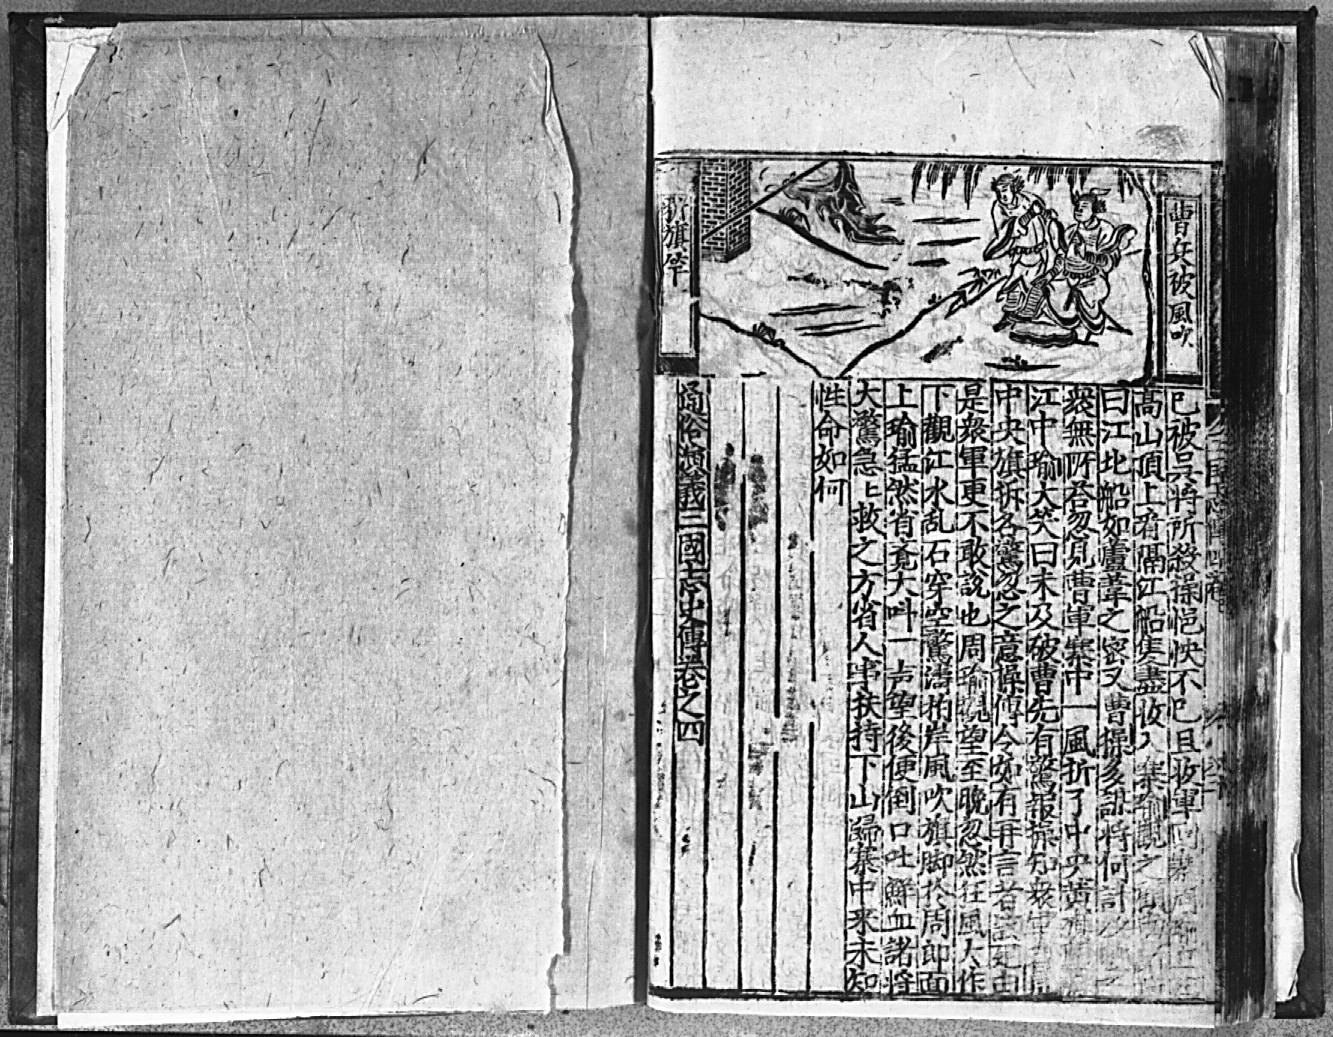 曹兵被風吹
折旗竿
已被吳將所殺操悒怏不已且收軍回寨周瑜
高山頂上看隔江船隻盡收入寨瑜觀之
曰江北船如蘆葦之密又曹操多謀將何計
衆無所答忽見曹軍寨中一風折了中央黃
江中瑜大笑曰未及破曹先有驚報操知衆軍
中央旗折各驚忽之意操傳令如有再言者
是衆軍更不敢說也周瑜曉望至晚忽然狂風大作
下觀江水乱石穿空驚濤拍岸風吹旗脚於周郎面
上瑜猛然省竟大呌一声望後便倒口吐鮮血諸將
大驚急上救之方省人事扶持下山歸寨中來未知
性命如何
通俗演義三國志史傳卷之四